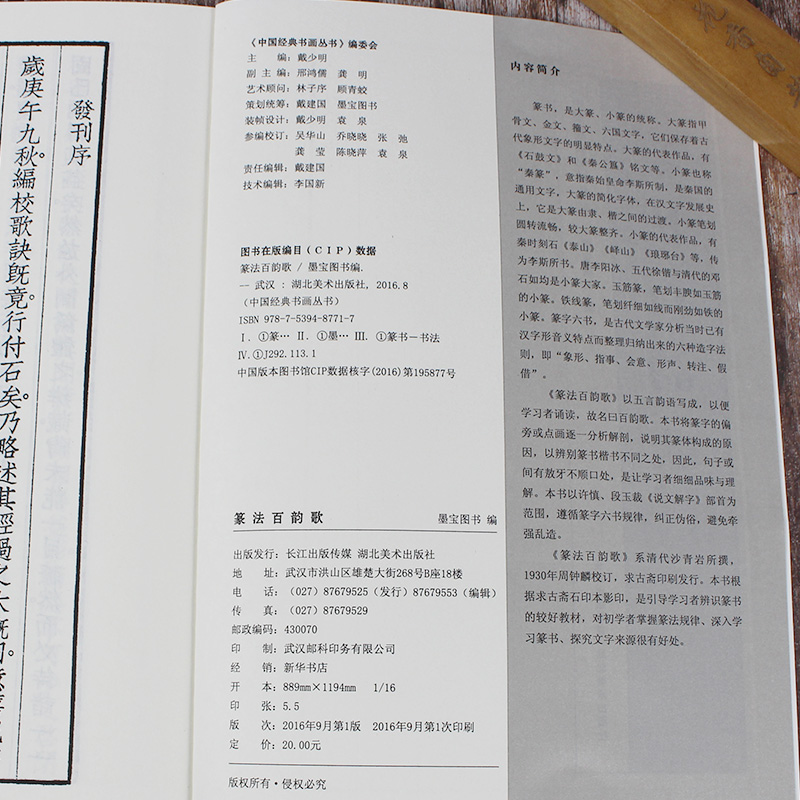 發刊序
歲庚午九秋。編校歌訣既竟。行付石矣。乃略述其經過之大概
《中国经典书画丛书》编委会
主　　编：戴少明
副 主 编：邢鸿儒　龚　明
艺术顾问：林子序　顾青蛟
策划统筹：戴建国　墨宝图书
装帧设计：戴少明　袁　泉
参编校订：吴华山　乔晓晓　张　弛
龚　莹　陈晓萍　袁　泉
责任编辑：戴建国
技术编辑：李国新
图书在版编目（CIP）数据
篆法百韵歌 / 墨宝图书编.
— 武汉 : 湖北美术出版社, 2016.8
（中国经典书画丛书）
ISBN 978-7-5394-8771-7
Ⅰ. ①篆… Ⅱ. ①墨… Ⅲ. ①篆书－书法
Ⅳ. ①J292.113.1
中国版本图书馆CIP数据核字(2016)第195877号
篆法百韵歌　　墨宝图书 编
出版发行：长江出版传媒 湖北美术出版社
地　　址：武汉市洪山区雄楚大街268号B座18楼
电　　话：（027）87679525（发行）87679553（编辑）
传　　真：（027）87679529
邮政编码：430070
印　　制：武汉邮科印务有限公司
经　　销：新华书店
开　　本：889mm×1194mm　1/16
印　　张：5.5
版　　次：2016年9月第1版　2016年9月第1次印刷
定　　价：20.00元
版权所有·侵权必究
内容简介
篆书，是大篆、小篆的统称。大篆指甲
骨文、金文、籀文、六国文字，它们保存着古
代象形文字的明显特点。大篆的代表作品，有
《石鼓文》和《秦公簋》铭文等。小篆也称
“秦篆”，意指秦始皇命李斯所制，是秦国的
通用文字，大篆的简化字体，在汉文字发展史
上，它是大篆由隶、楷之间的过渡。小篆笔划
圆转流畅，较大篆整齐。小篆的代表作品，有
秦时刻石《泰山》《峄山》《琅琊台》等，传
为李斯所书。唐李阳冰、五代徐锴与清代的邓
石如均是小篆大家。玉筋篆，笔划丰腴如玉筋
的小篆。铁线篆，笔划纤细如线而刚劲如铁的
小篆。篆字六书，是古代文学家分析当时已有
汉字形音义特点而整理归纳出来的六种造字法
则，即“象形、指事、会意、形声、转注、假
借”。
《篆法百韵歌》以五言韵语写成，以便
学习者诵读，故名曰百韵歌。本书将篆字的偏
旁或点画逐一分析解剖，说明其篆体构成的原
因，以辨别篆书楷书不同之处，因此，句子或
间有敖牙不顺口处，是让学习者细细品味与理
解。本书以许慎、段玉裁《说文解字》部首为
范围，遵循篆字六书规律，纠正伪俗，避免牵
强乱造。
《篆法百韵歌》系清代沙青岩所撰，
1930年周钟麟校订，求古斋印刷发行。本书根
据求古斋石印本影印，是引导学习者辨识篆书
的较好教材，对初学者掌握篆法规律、深入学
习篆书、探究文字来源很有好处。